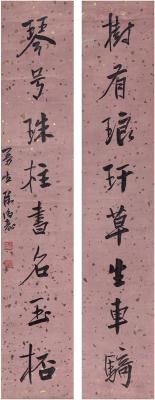 樹有琅玕草生車騎
琴号珠柱書名玉桮